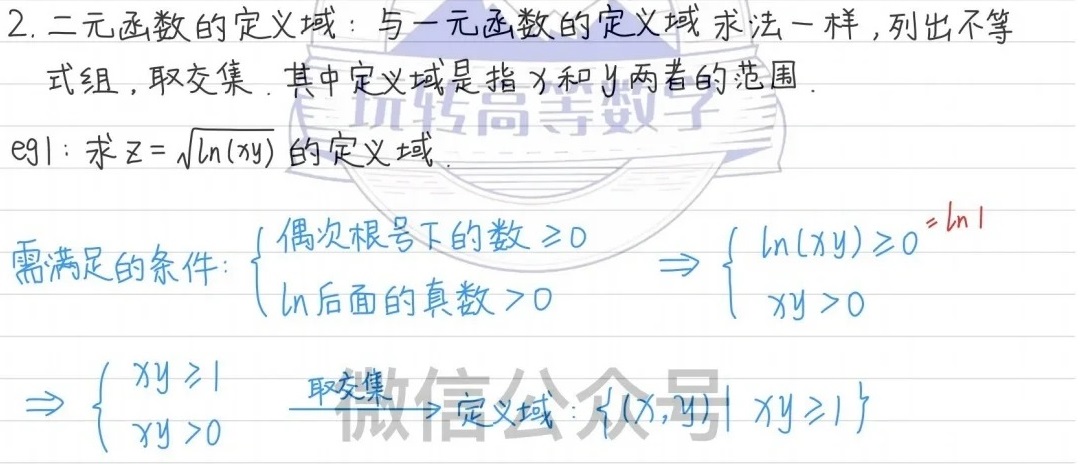 2. 二元函数的定义域：与一元函数的定义域求法一样,列出不等
式组,取交集.其中定义域是指x和y两者的范围.
玩转高等数学
eg1: 求z=√ln(xy) 的定义域.
需满足的条件: { 偶次根号下的数≥0 ⇒ { ln(xy)≥0 = ln1
ln后面的真数>0 xy>0
⇒ { xy≥1 取交集→ 定义域: {(x,y)| xy≥1}
xy>0
微信公众号